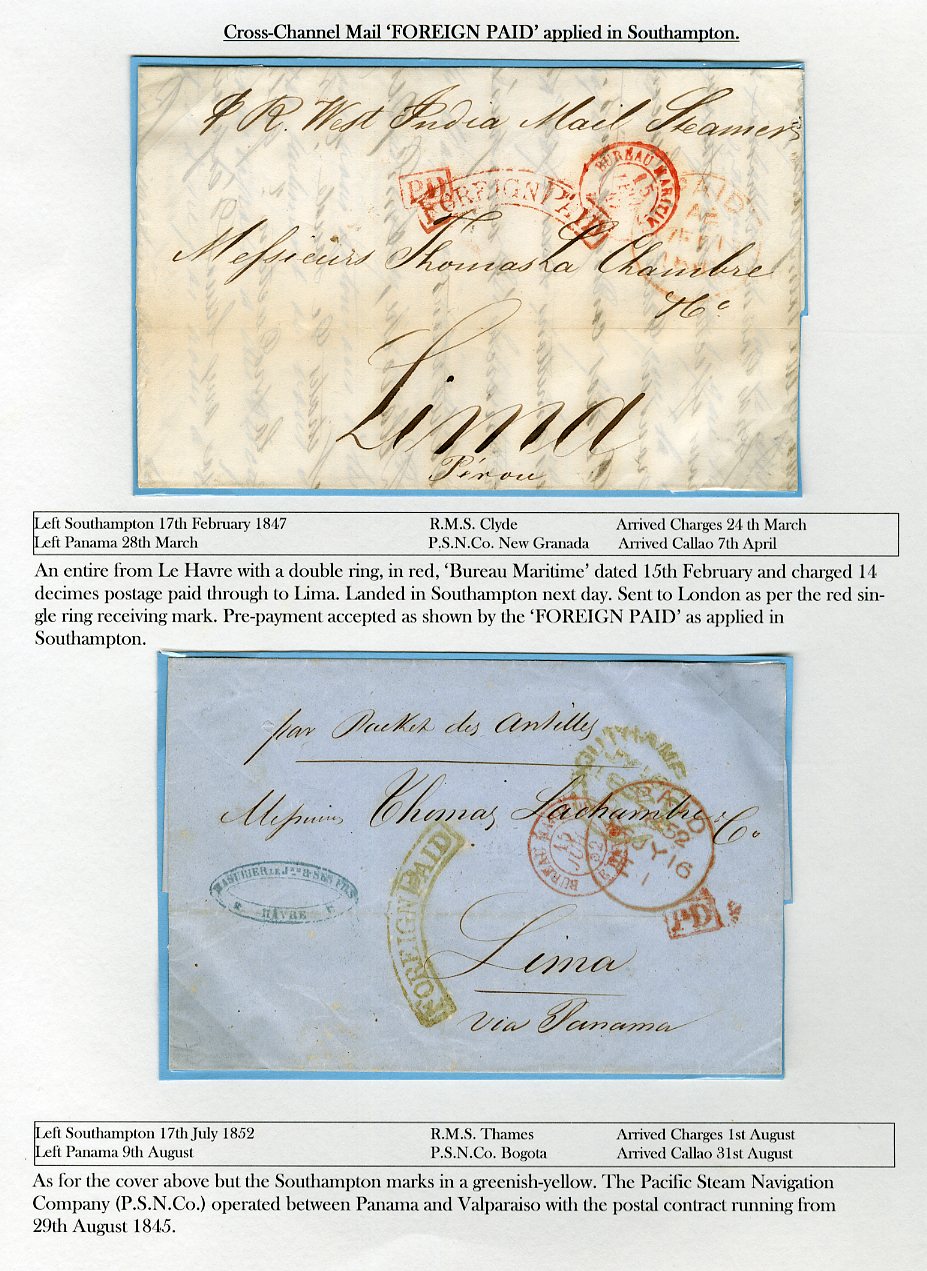 Cross-Channel Mail ‘FOREIGN PAID’ applied in Southampton.
R. West India Mail Steamer
PD
FOREIGN PAID
BUREAU MARITIM
15
Messieurs Thomas La Chambre
& Co
Lima
Pérou
Left Southampton 17th February 1847 R.M.S. Clyde Arrived Charges 24 th March
Left Panama 28th March P.S.N.Co. New Granada Arrived Callao 7th April
An entire from Le Havre with a double ring, in red, ‘Bureau Maritime’ dated 15th February and charged 14
decimes postage paid through to Lima. Landed in Southampton next day. Sent to London as per the red sin-
gle ring receiving mark. Pre-payment accepted as shown by the ‘FOREIGN PAID’ as applied in
Southampton.
par Packet des Antilles
SOUTHAMP
Messieurs Thomas Lachambre & Co
PAID
52
JY 16
BUREAU
15
52
MASURIER LE JNE & SES FILS
HAVRE
FOREIGN PAID
PD
Lima
via Panama
Left Southampton 17th July 1852 R.M.S. Thames Arrived Charges 1st August
Left Panama 9th August P.S.N.Co. Bogota Arrived Callao 31st August
As for the cover above but the Southampton marks in a greenish-yellow. The Pacific Steam Navigation
Company (P.S.N.Co.) operated between Panama and Valparaiso with the postal contract running from
29th August 1845.